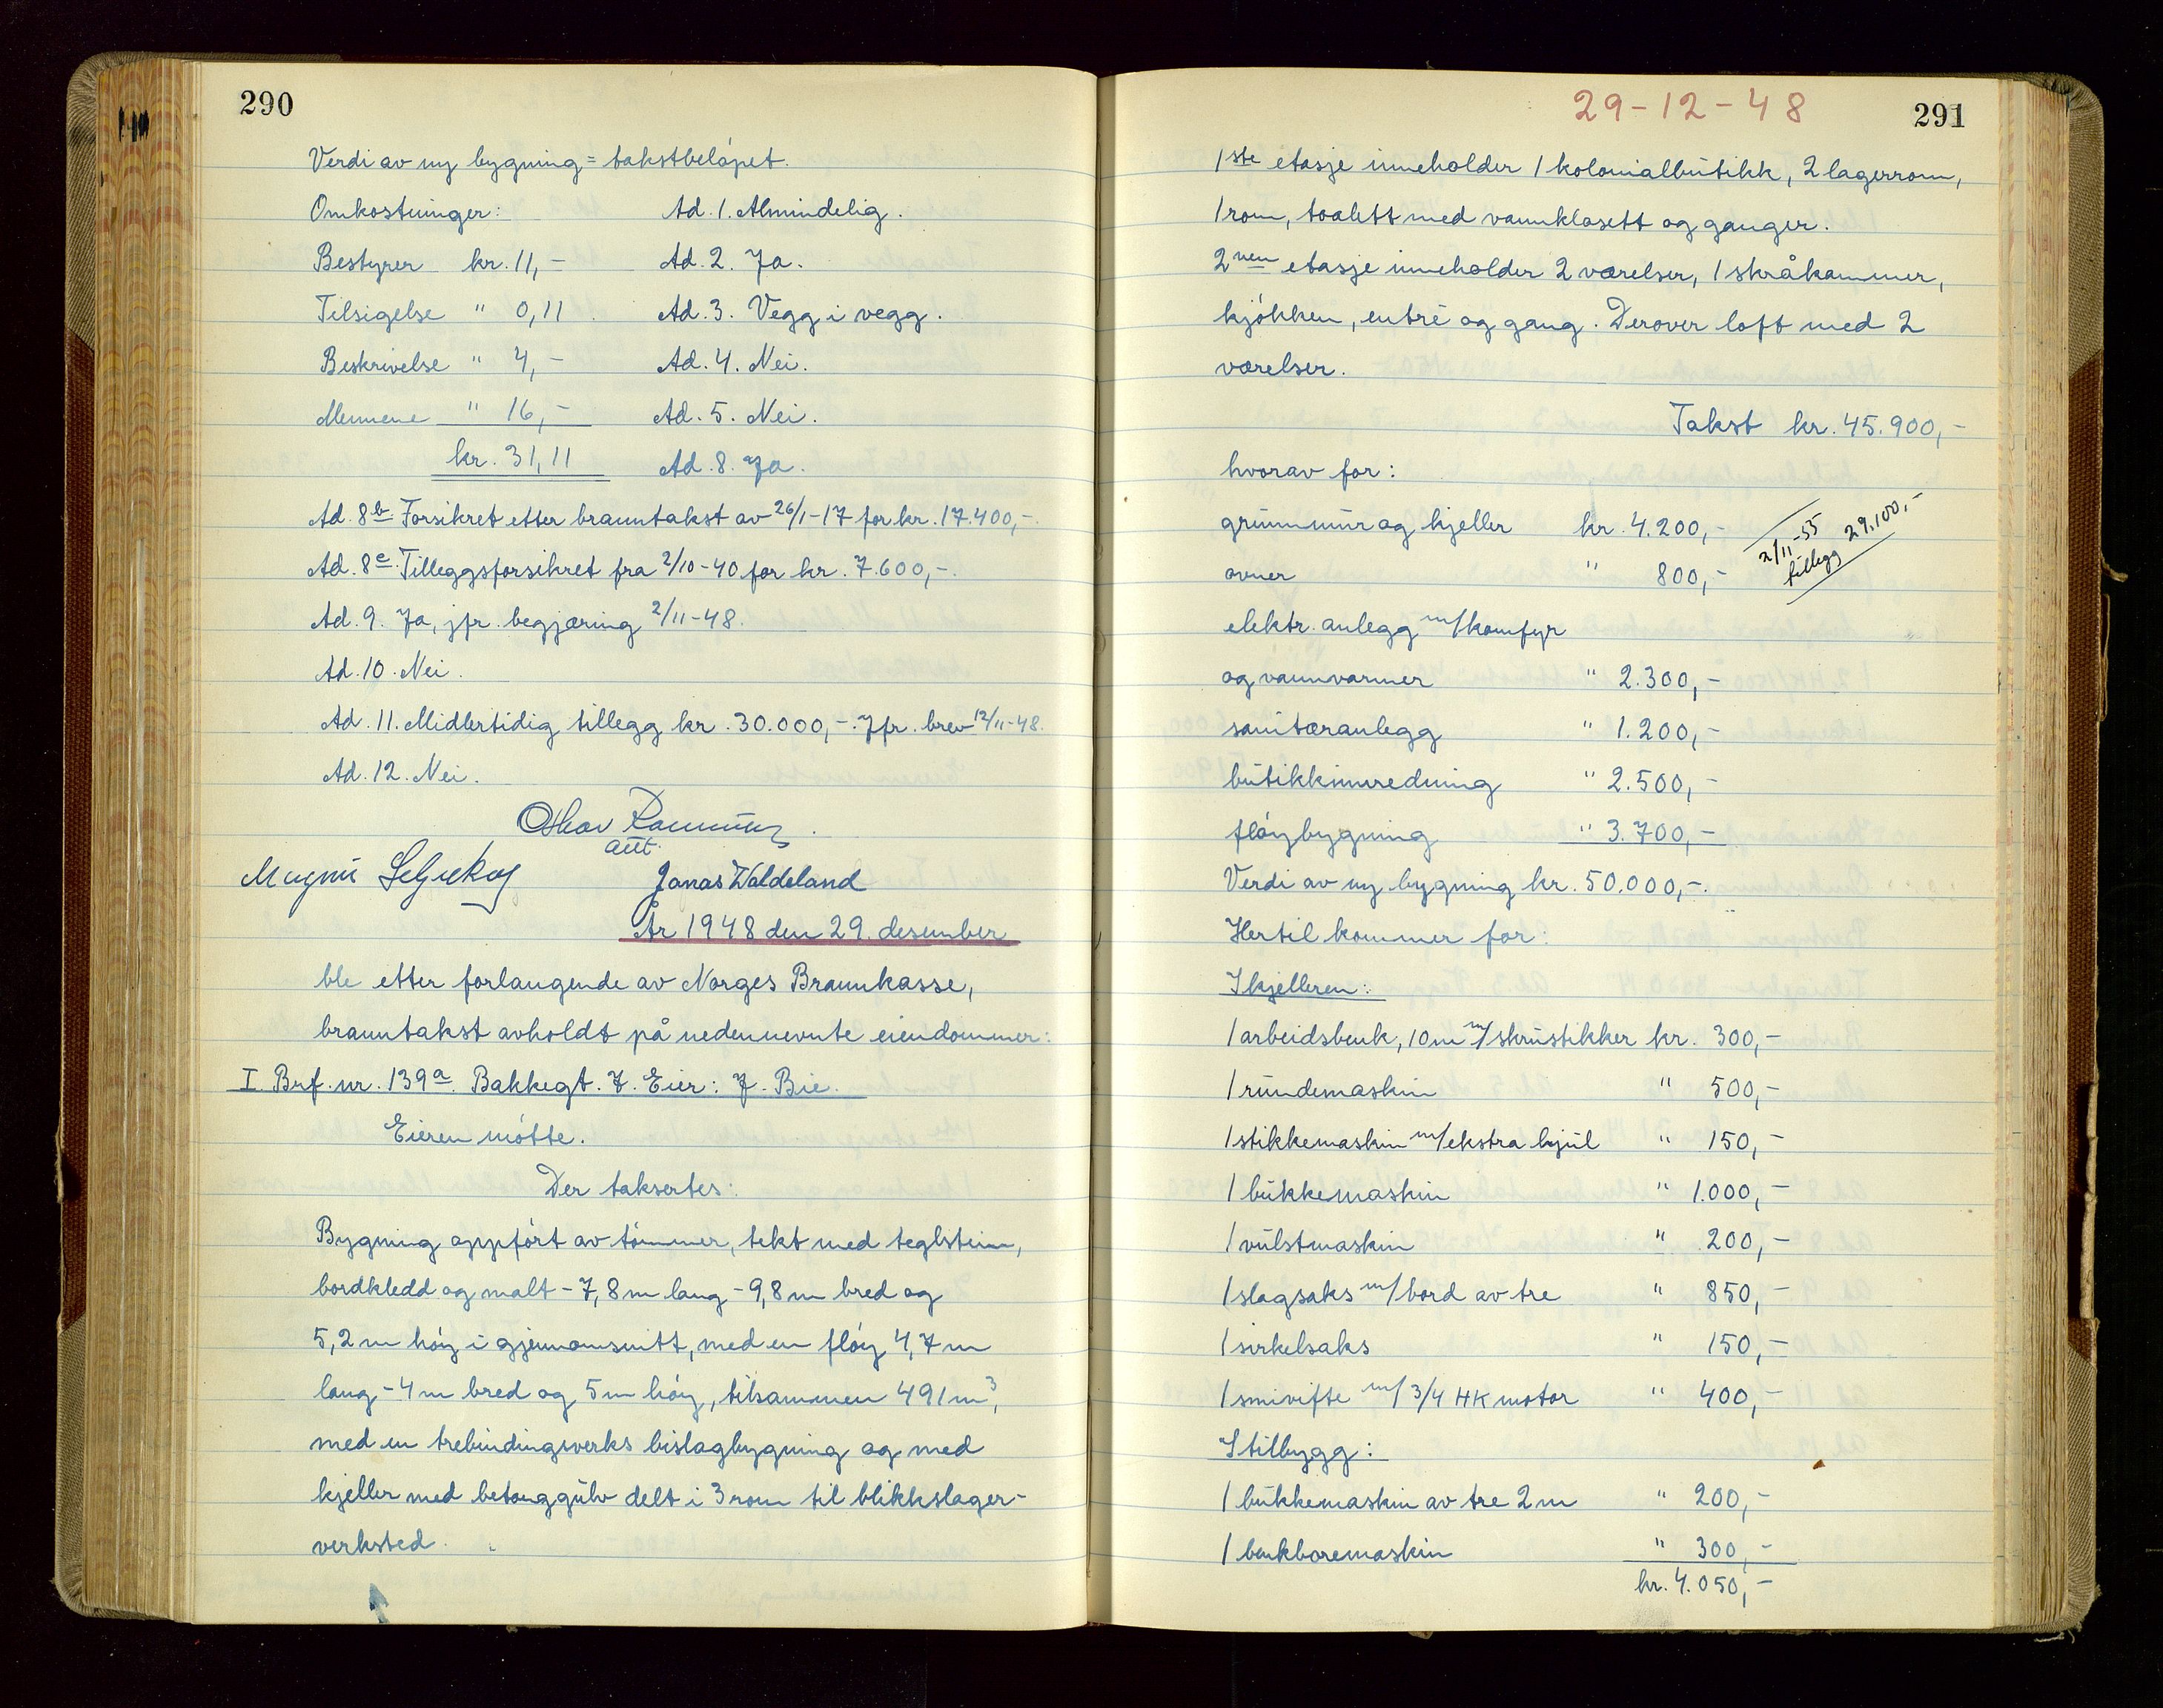 290
Verdi av ny bygning = takstbeløpet.
Omkostninger: Ad. 1. Almindelig.
Bestyrer kr. 11,- Ad. 2. Ja.
Tilsigelse " 0,11 Ad. 3. Vegg i vegg.
Beskrivelse " 4,- Ad. 4. Nei.
Mennene " 16,- Ad. 5. Nei.
kr. 31,11 Ad. 8. Ja.
Ad. 8b. Forsikret etter branntakst av 26/1-17 for kr. 17.400,-.
Ad. 8c. Tilleggsforsikret fra 2/10-40 for kr. 7.600,-.
Ad. 9. Ja, jfr. begjæring 2/11-48.
Ad. 10. Nei.
Ad. 11. Midlertidig tillegg kr. 30.000,-. Jfr. brev 12/11-48.
Ad. 12. Nei.
aut.
Jonas Waldeland
År 1948 den 29. desember
ble etter forlangende av Norges Brannkasse,
branntakst avholdt på nedennevnte eiendommer:
I. Brf. nr. 139a. Bakkegt. 7. Eier: J. Bie.
Eieren møtte.
Der taksertes:
Bygning oppført av tømmer, tekt med teglstein,
bordkledd og malt - 7,8 m lang - 9,8 m bred og
5,2 m høy i gjennomsnitt, med en fløy 4,7 m
lang - 4 m bred og 5 m høy, tilsammen 491 m3,
med en trebindingsverks bislagbygning og med
kjeller med betonggulv delt i 3 rom til blikkslager-
verksted.
29-12-48
291
1ste etasje inneholder 1 kolonialbutikk, 2 lagerrom,
1 rom, toalett med vannklosett og ganger.
2nen etasje inneholder 2 værelser, 1 skråkammer,
kjøkken, entré og gang. Derover loft med 2
værelser.
Takst kr. 45.900,-
hvorav for:
grunnmur og kjeller kr. 4.200,-
2/11-55 29.100,-
tillegg
ovner " 800,-
elektr. anlegg m/komfyr
og vannvarmer " 2.300,-
sanitæranlegg " 1.200,-
butikkinnredning " 2.500,-
fløybygning " 3.700,-
Verdi av ny bygning kr. 50.000,-.
Hertil kommer for:
I kjelleren:
1 arbeidsbenk, 10 m m/skrustikker kr. 300,-
1 rundemaskin " 500,-
1 stikkemaskin m/ekstra hjul " 150,-
1 bukkemaskin " 1.000,-
1 vulstmaskin " 200,-
1 slagsaks m/bord av tre " 850,-
1 sirkelsaks " 150,-
1 smivifte m/ 3/4 HK motor " 400,-
I tilbygg:
1 bukkemaskin av tre 2 m " 200,-
1 benkboremaskin " 300,-
kr. 4.050,-